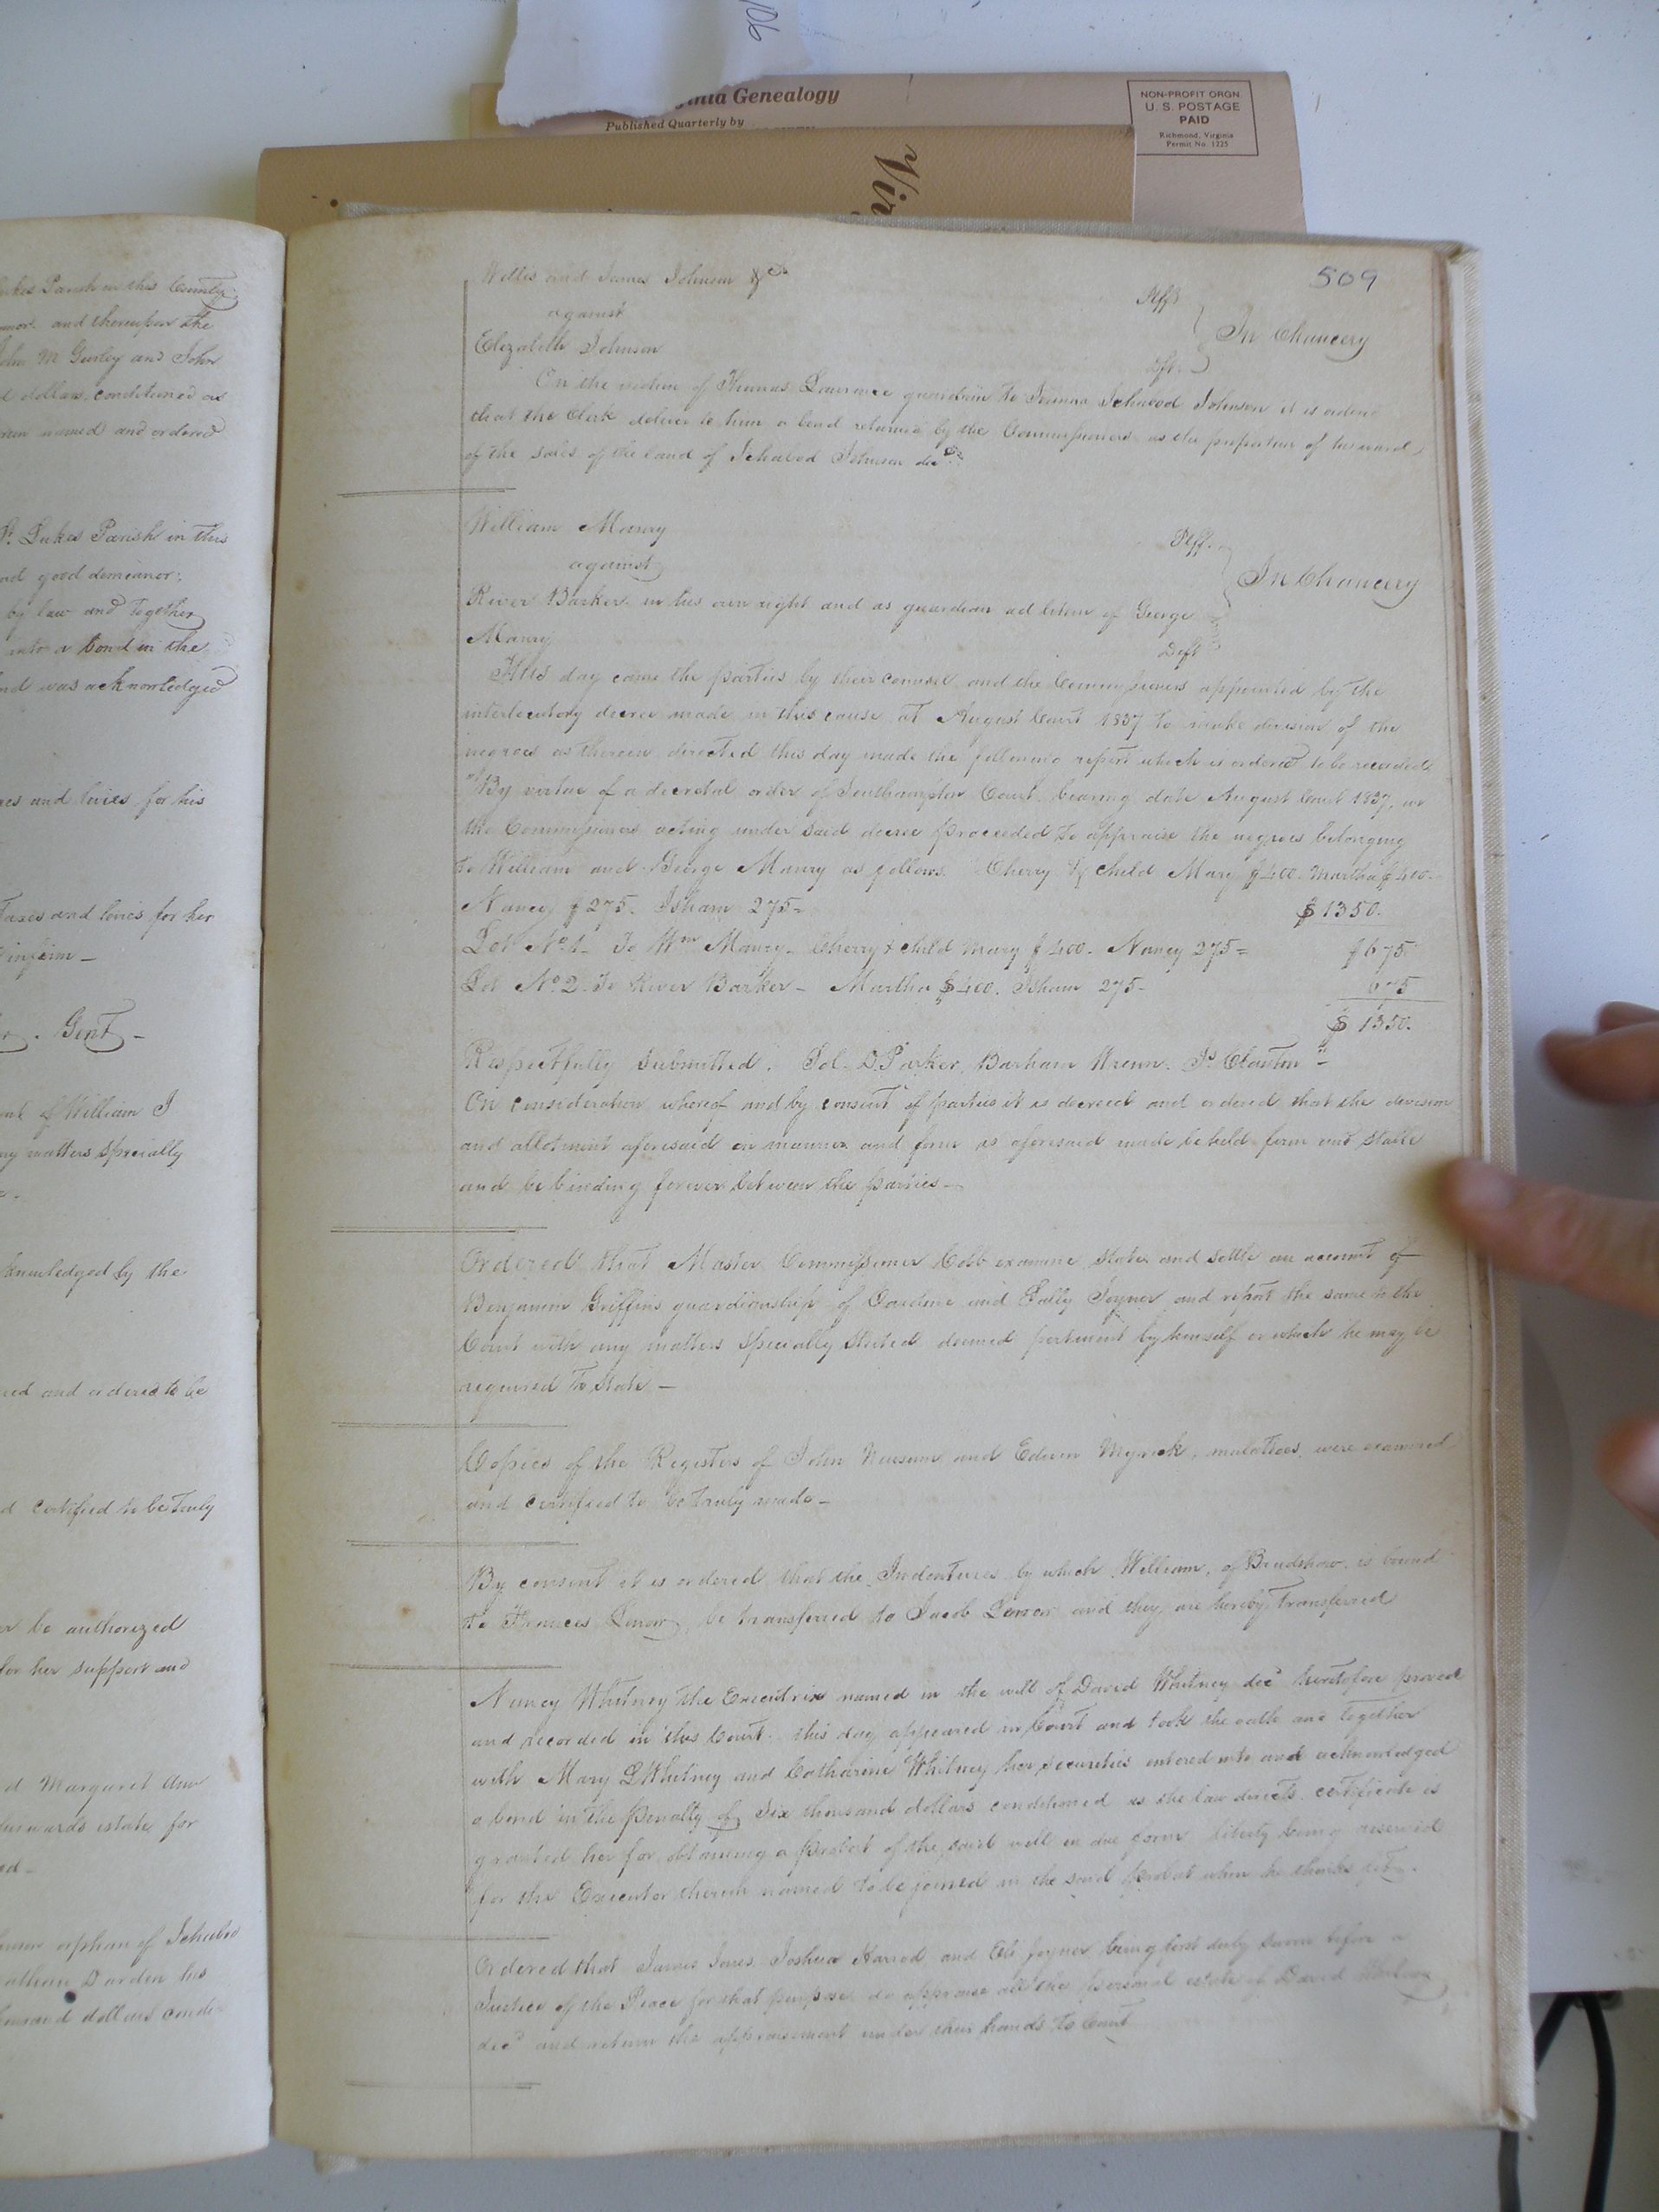 906
Virginia Genealogy
Published Quarterly by
NON-PROFIT ORGN.
U. S. POSTAGE
PAID
Richmond, Virginia
Permit No. 1225
Vir
Lukes Parish in this County
and thereupon the
John M Gurley and John
d dollars, conditioned as
named and ordered
St. Lukes Parish in this
and good demeanor,
by law and together
into a bond in the
and was acknowledged
and levies for his
Taxes and levies for her
infirm _
Gent _
of William J
any matters specially
acknowledged by the
and ordered to be
d certified to be truly
be authorized
for her support and
d Margaret Ann
estate for
orphan of Ichabod
Darden his
thousand dollars condi
509
Willis and James Johnson &c
Plffs
against
In Chancery
Elizabeth Johnson
Dft
On the motion of Thomas Lawrence guardian to Ichabod Johnson it is ordered
that the Clerk deliver to him a bond returned by the Commissioners as the proportion of his ward
of the sales of the land of Ichabod Johnson decd.
William Manry
Plff.
against
In Chancery
River Barker in his own right and as guardian ad litem of George
Manry
Deft
This day came the parties by their counsel and the Commissioners appointed by the
interlocutory decree made in this cause at August Court 1837 to make division of the
negroes as therein directed this day made the following report which is ordered to be recorded
"By virtue of a decretal order of Southampton Court bearing date August Court 1837, we
the Commissioners acting under said decree proceeded to appraise the negroes belonging
to William and George Manry as follows. Cherry & child Mary $400. Martha $400.
Nancy $275. Isham 275= $1350.
Lot No. 1. To Wm Manry. Cherry & child Mary $400. Nancy 275= $675
Lot No. 2. To River Barker _ Martha $400. Isham 275_ 675
$1350.
Respectfully submitted. Sol. D Parker, Barham Wrenn. Js Clanton"_
On consideration whereof and by consent of parties it is decreed and ordered that the division
and allotment aforesaid in manner and form as aforesaid made be held firm and stable
and be binding forever between the parties _
Ordered that Master Commissioner Cobb examine state and settle an account of
Benjamin Griffins guardianship of and Sally Joyner and report the same to the
Court with any matters specially stated deemed pertinent by himself or which he may be
required to state _
Copies of the Registers of John Newsum and Edwin Myrick, mulattoes, were examined
and certified to be truly made _
By consent it is ordered that the Indentures by which William, of Bradshaw is bound
to Frances be transferred to Jacob and they are hereby transferred
Nancy Whitney the Executrix named in the will of David Whitney decd heretofore proved
and recorded in this Court. this day appeared in Court and took the oath and together
with Mary L Whitney and Catharine Whitney her securities entered into and acknowledged
a bond in the penalty of Six thousand dollars conditioned as the law directs. certificate is
granted her for obtaining a probat of the said will in due form liberty being reserved
for the Executor therein named to be joined in the said probat when he thinks fit _
Ordered that James Jones Joshua Harrod and Eli Joyner being first duly sworn before a
Justice of the Peace for that purpose do appraise all the personal estate of David Whitney
decd and return the appraisement under their hands to Court